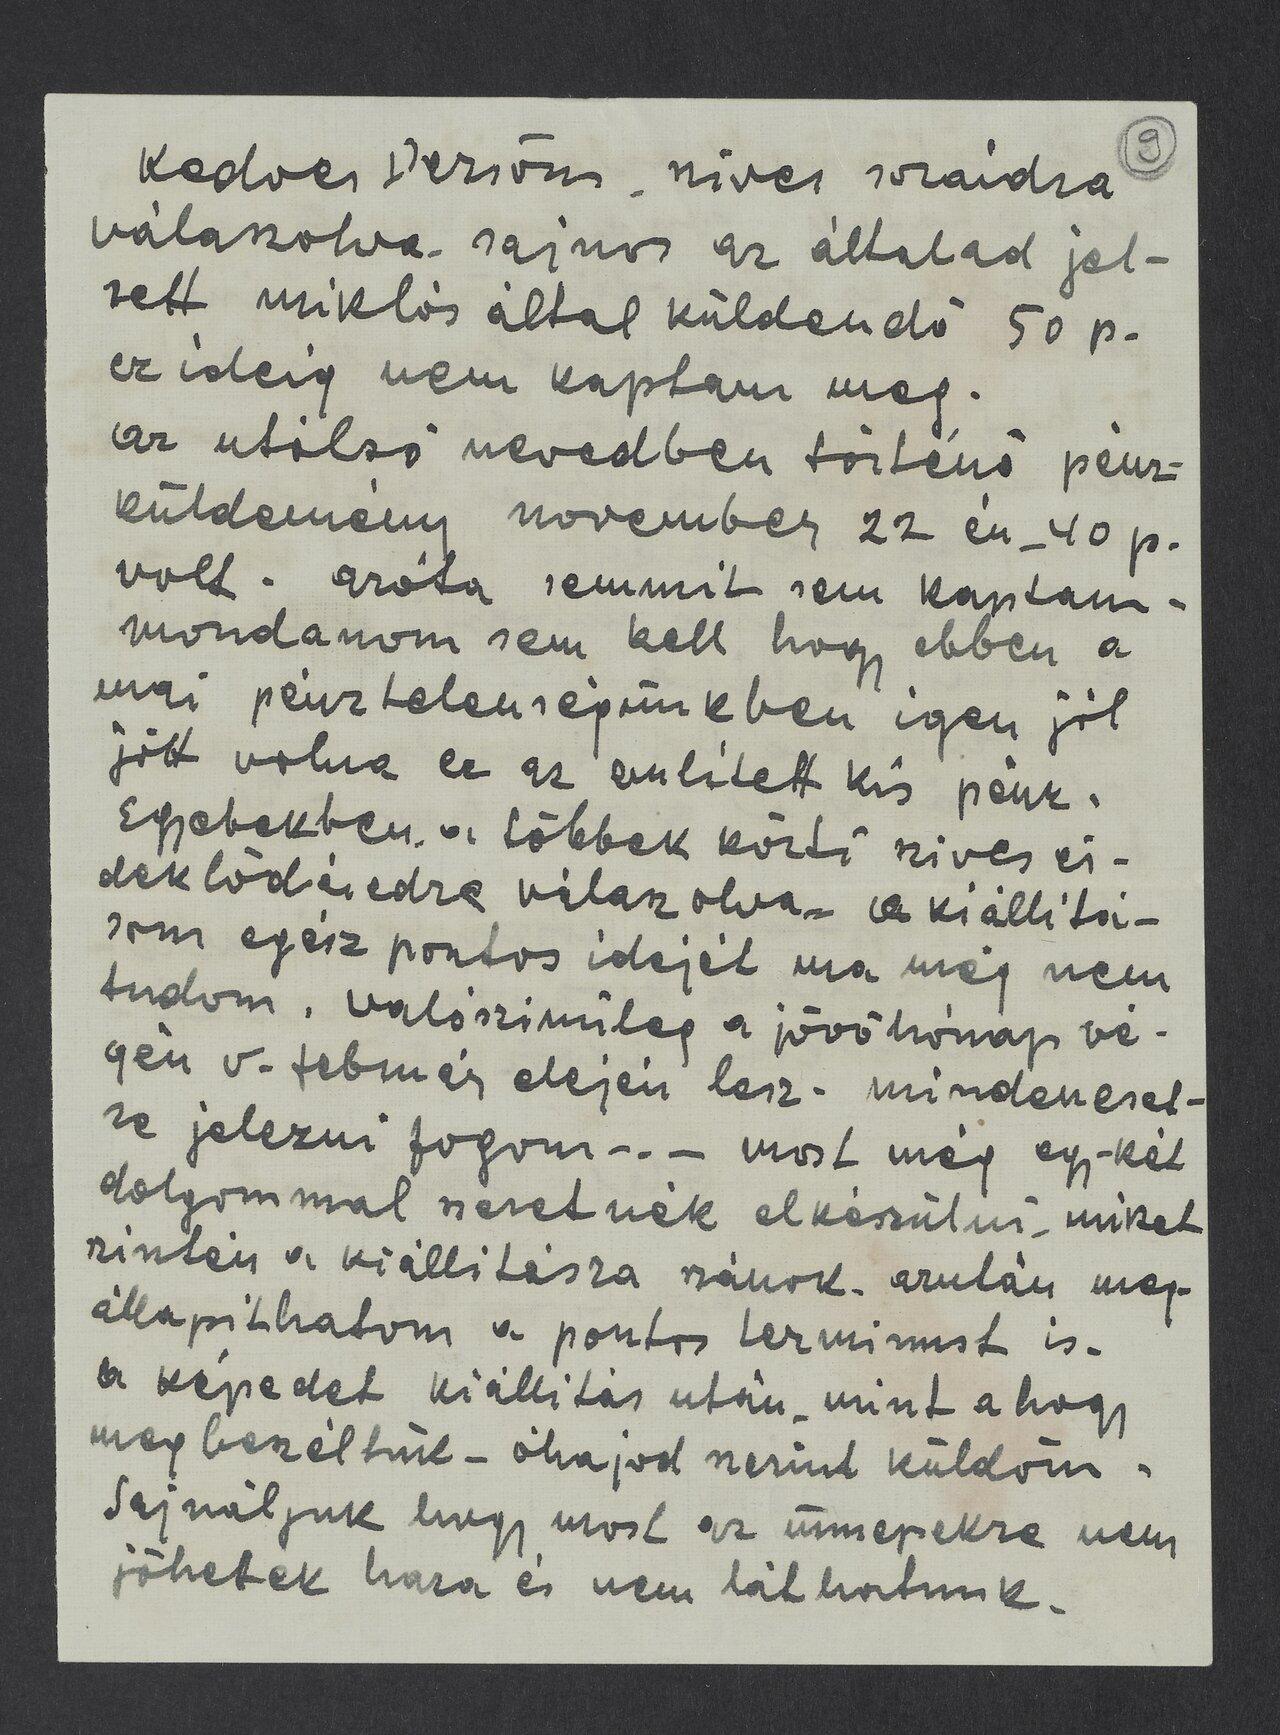 9
Kedves Dezsőm - szives soraidra
válaszolva - sajnos az általad jel-
zett miklós által küldendő 50 p.
ez ideig nem kaptam meg.
az utólsó nevedben történő pénz-
küldemény november 22 én - 40 p.
volt. azóta semmit sem kaptam -
mondanom sem kell hogy ebben a
mai pénztelenségünkben igen jól
jött volna ez az emlitett kis pénz.
Egyebekben. a többek közti szives ér-
deklődésedre válaszolva - a kiállitá-
som egész pontos idejét ma még nem
tudom. valószinüleg a jövő hónap vé-
gén v. február elején lesz - mindeneset-
re jelezni fogom - . - most még egy-két
dolgommal szeretnék elkészülni - miket
szintén a kiállitásra szánok. azután meg-
állapithatom a pontos terminust is.
a képedet kiállitás után - mint ahogy
megbeszéltük - óhajod szerint küldöm.
Sajnáljuk hogy most az ünnepekre nem
jöhetek haza és nem láthatunk.